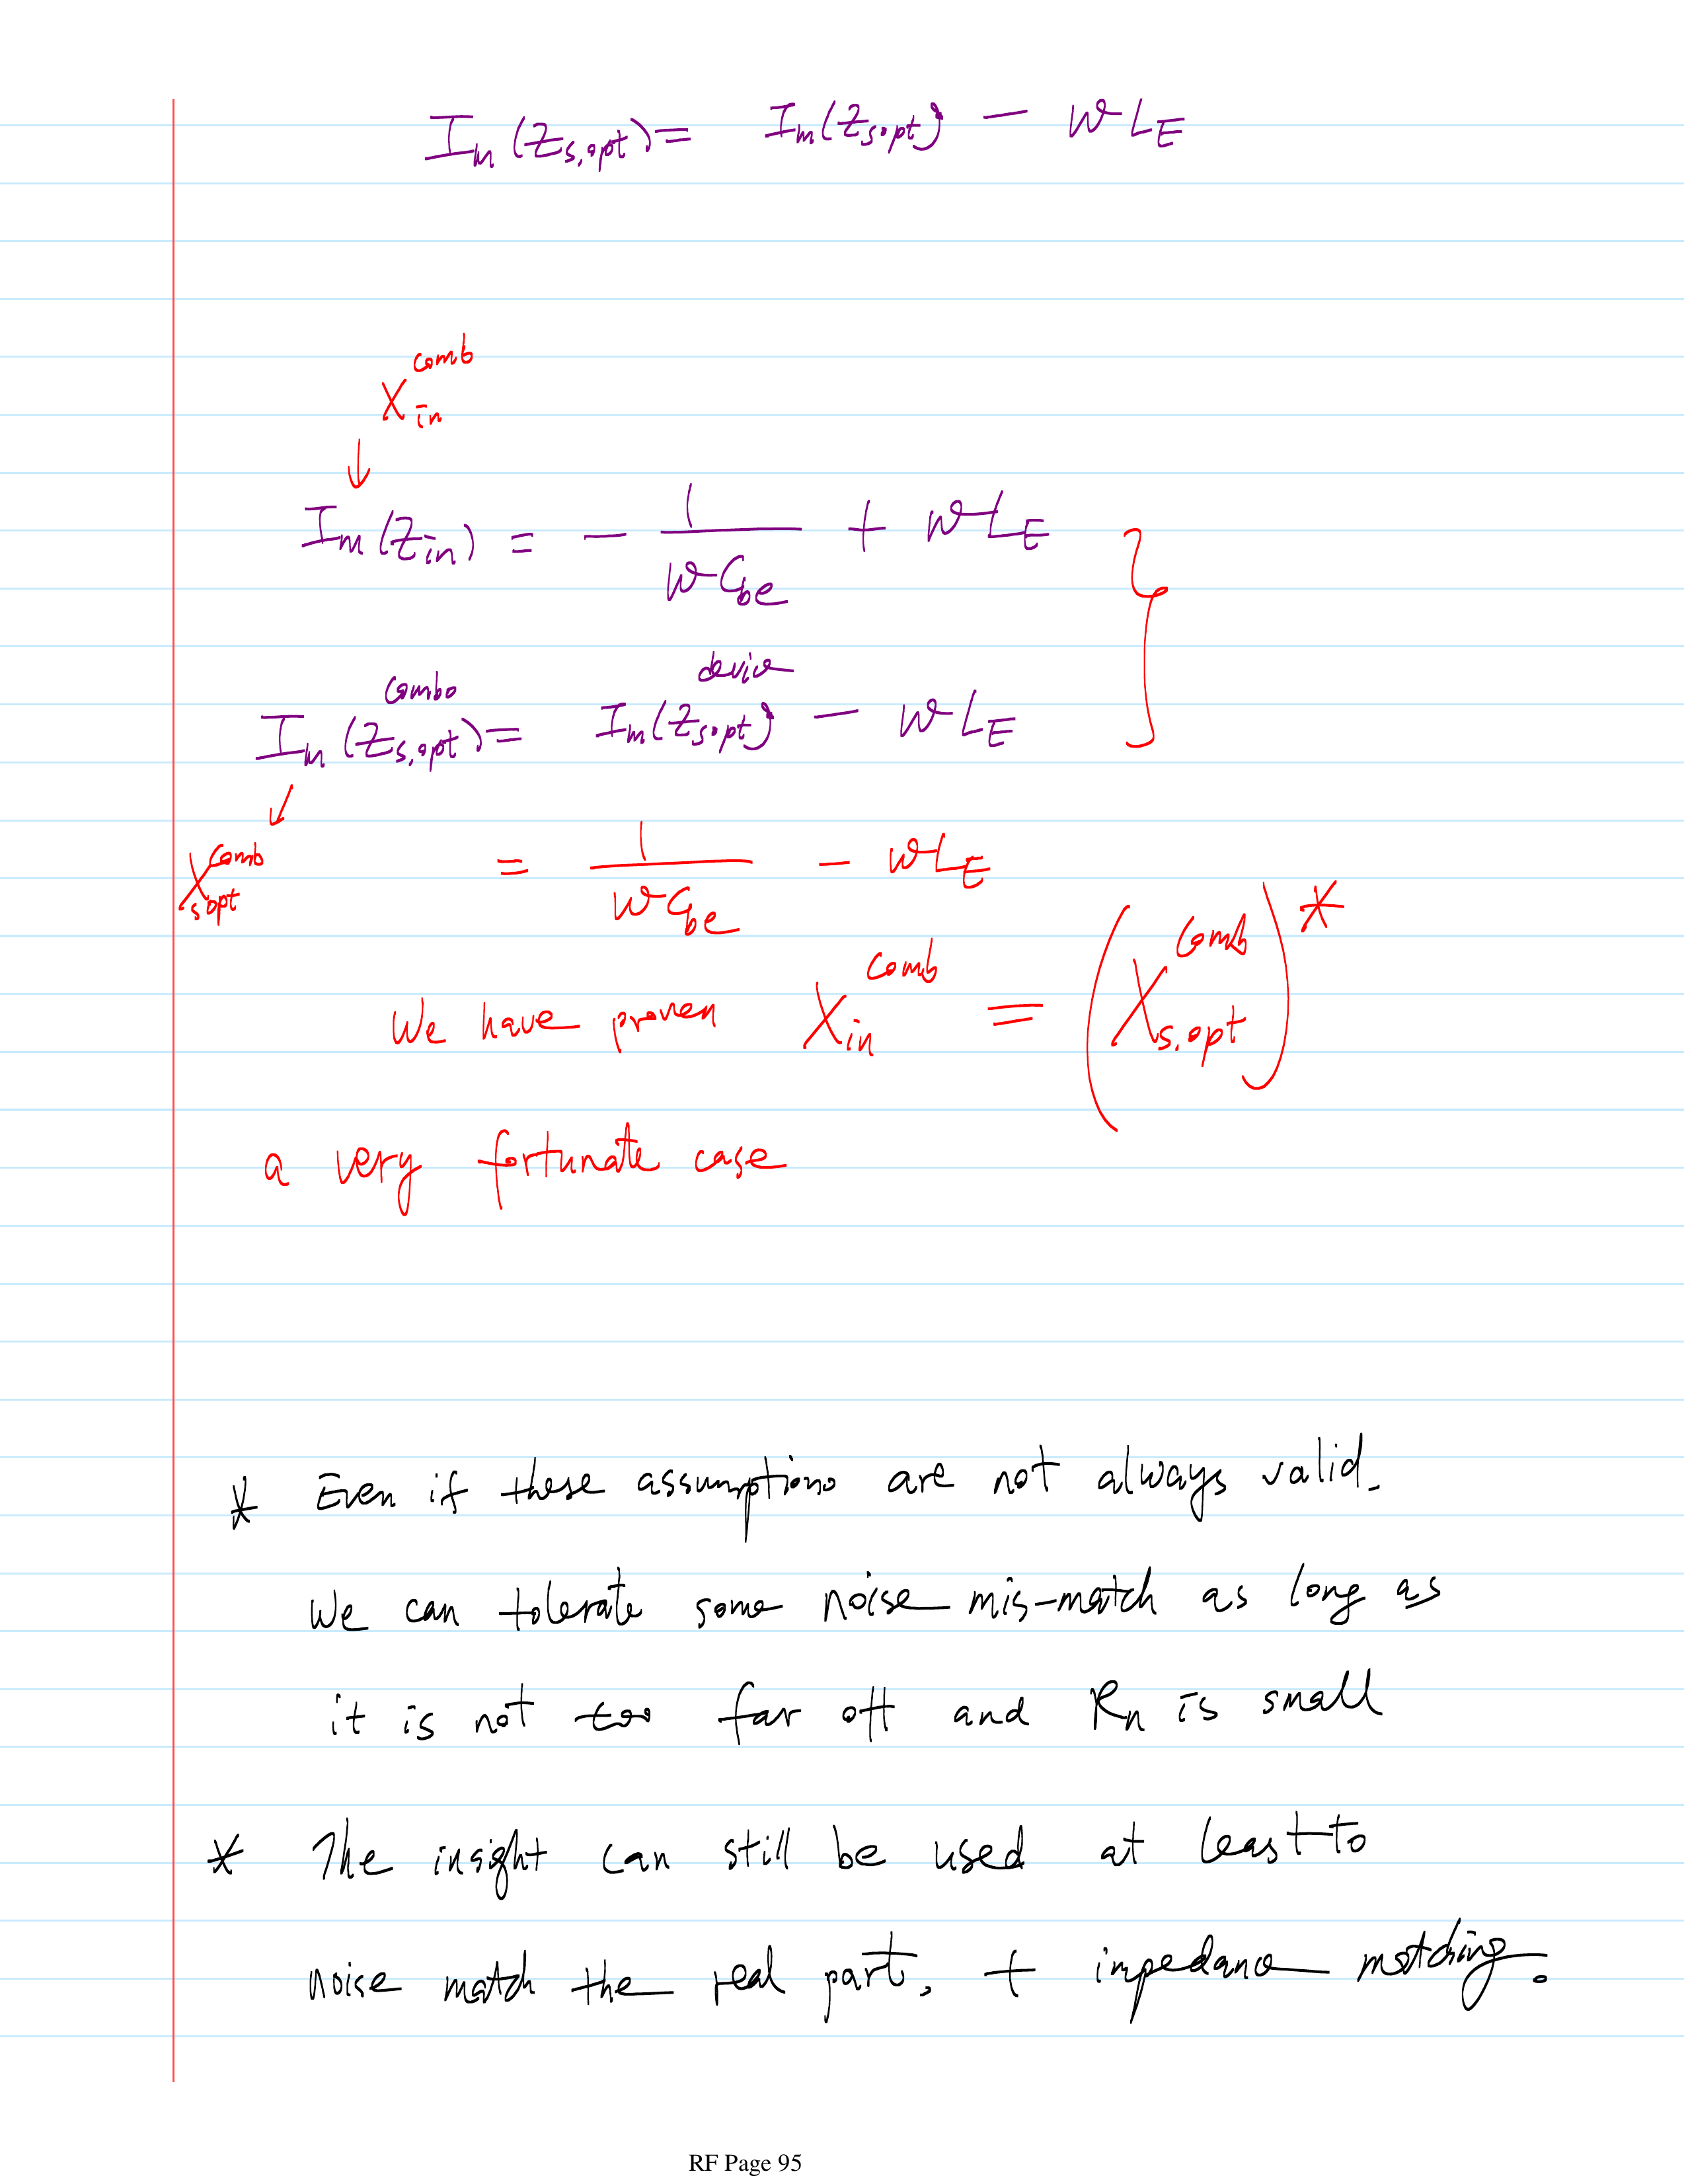 Im (Z_s,opt) = Im(Z_sopt) − ωL_E
X_in^comb
↓
Im (Z_in) = − 1/(ωC_be) + ωL_E }
Im (Z_s,opt)^combo = Im(Z_sopt)^device − ωL_E
↙
X_sopt^comb = 1/(ωC_be) − ωL_E
We have proven X_in^comb = (X_s,opt^comb)*
a very fortunate case
* Even if these assumptions are not always valid.
We can tolerate some noise mis-match as long as
it is not too far off and Rn is small
* The insight can still be used at least to
noise match the real part, + impedance matching.
RF Page 95